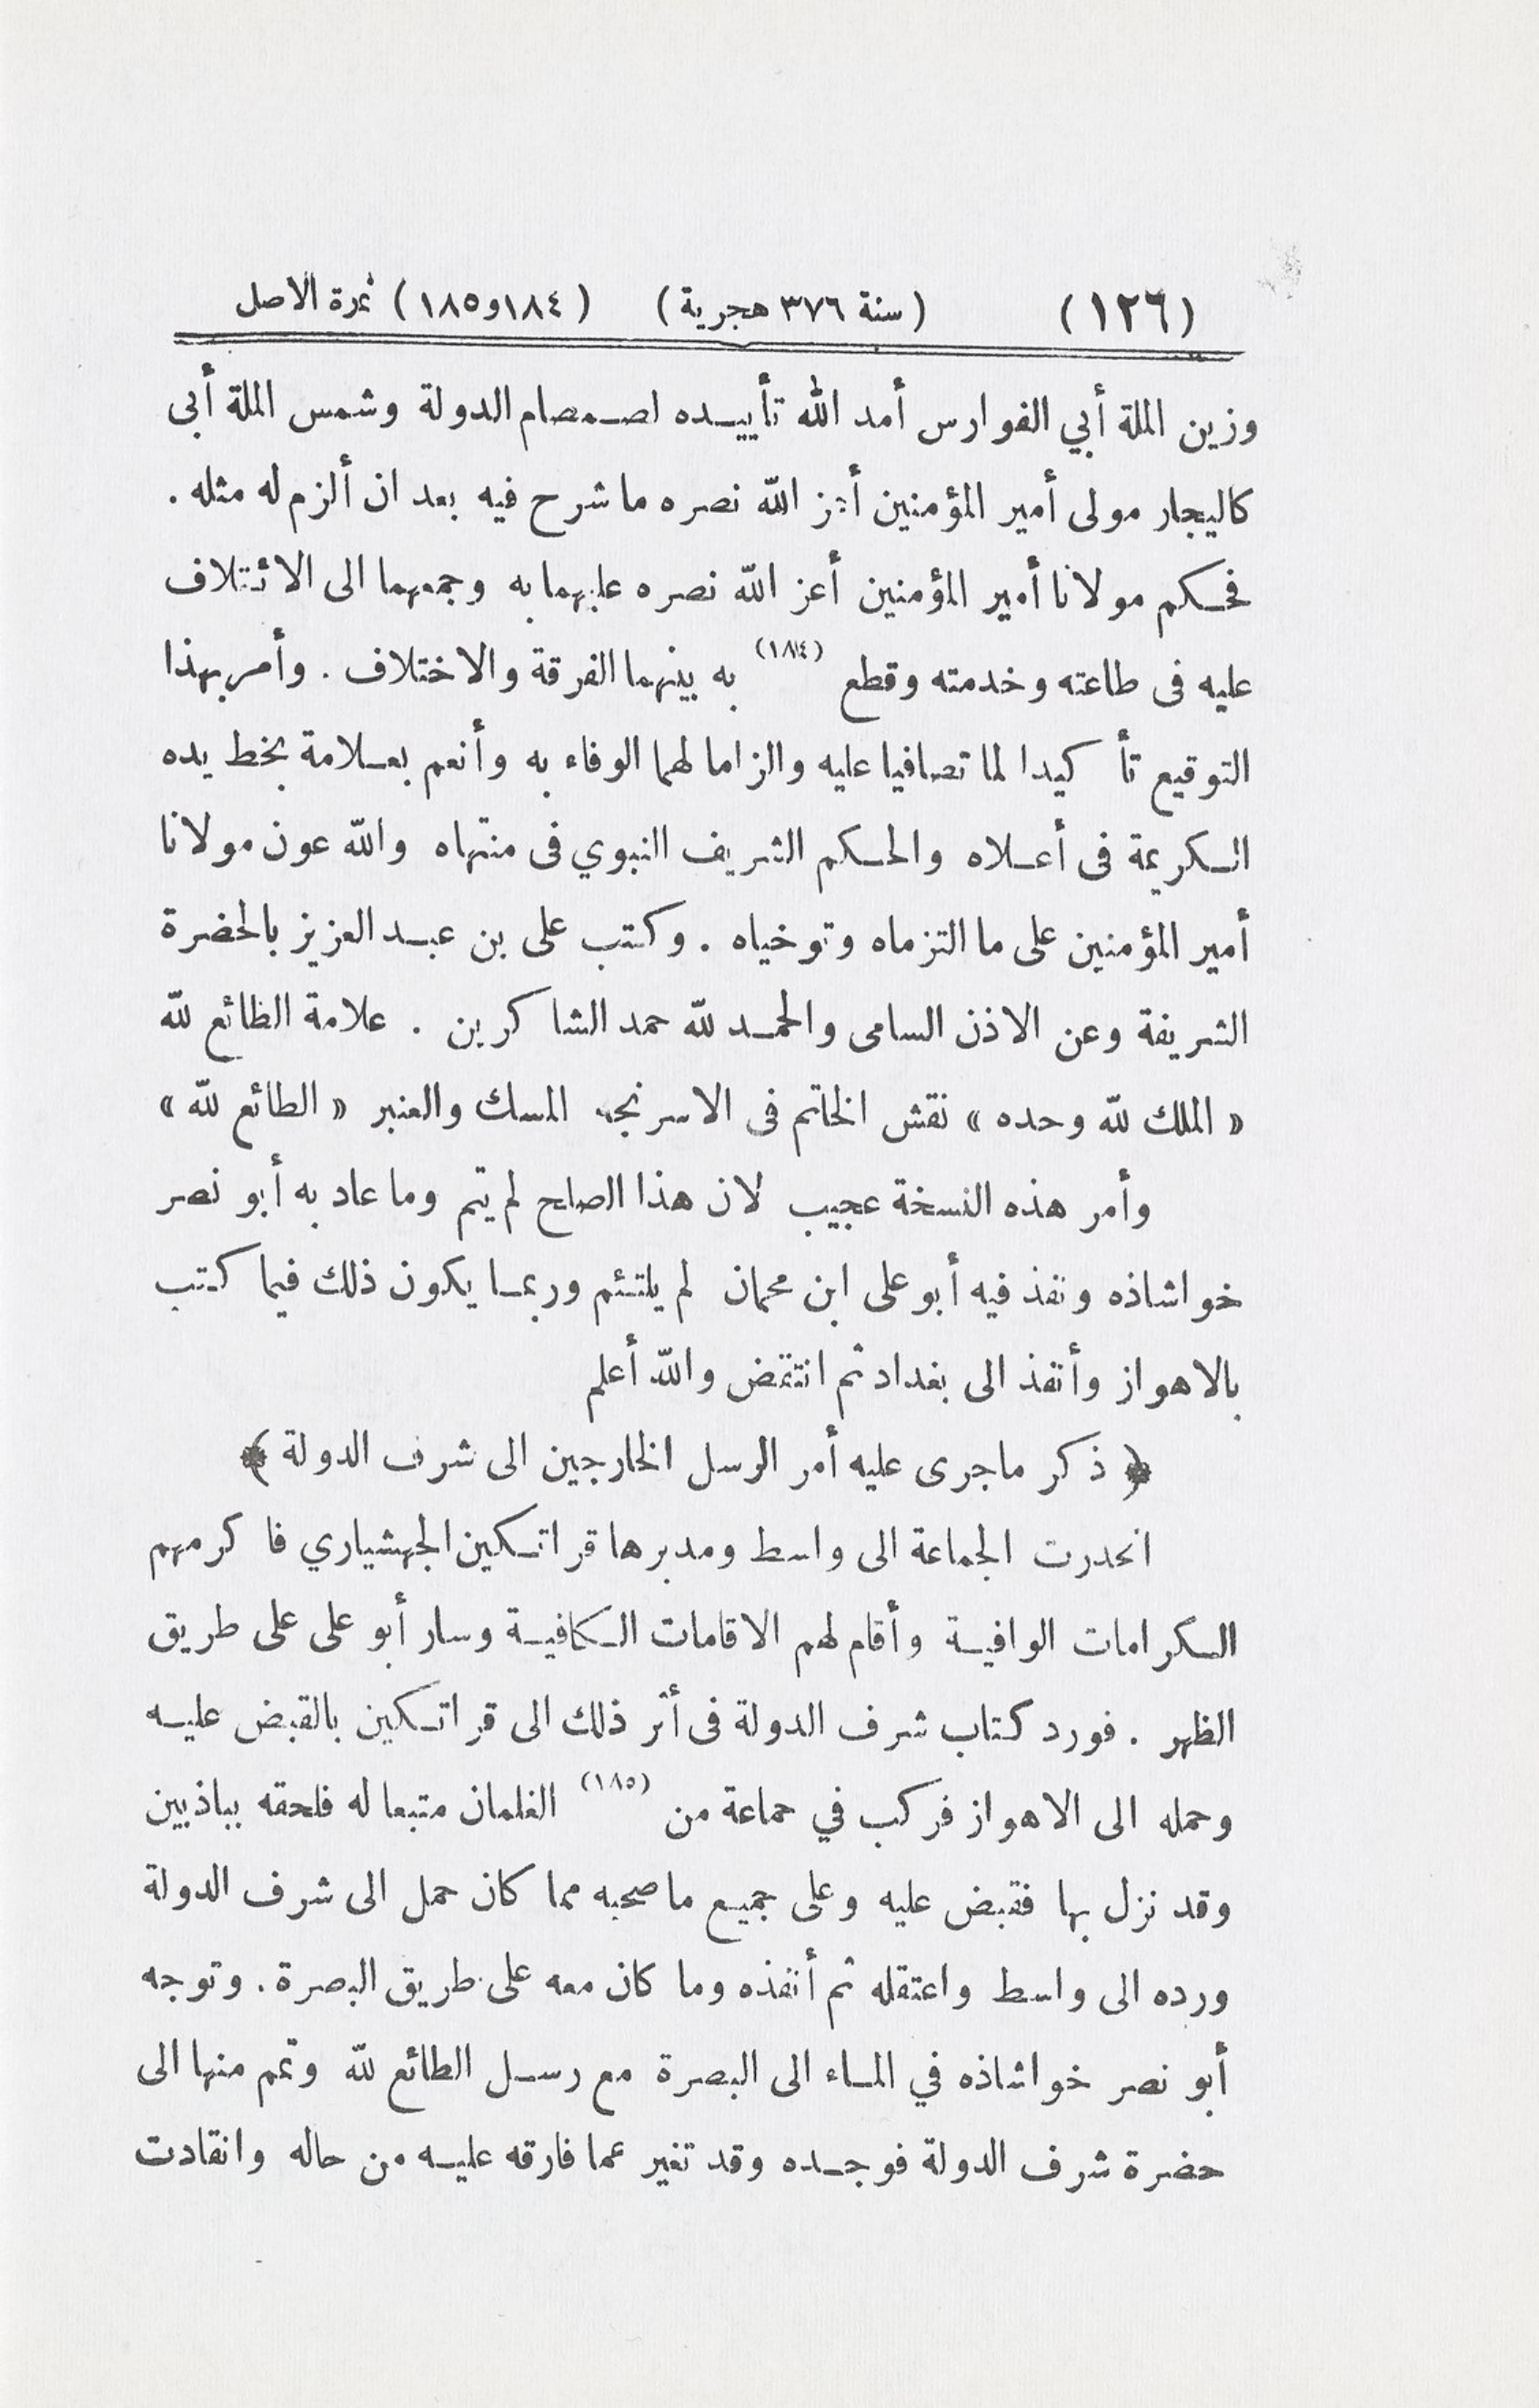 (١٢٦) (سنة ٣٧٦ هجرية) (١٨٤ و١٨٥) نمرة الاصل
وزين الملة أبي الفوارس أمد الله تأييده لصمصام الدولة وشمس الملة أبى
كاليجار مولى أمير المؤمنين أعز الله نصره ما شرح فيه بعد ان ألزم له مثله .
فحكم مولانا أمير المؤمنين أعز الله نصره عليهما به وجمعهما الى الائتلاف
عليه فى طاعته وخدمته وقطع (١٨٤) به بينهما الفرقة والاختلاف . وأمر بهذا
التوقيع تأكيدا لما تصافيا عليه والزاما لهما الوفاء به وأنعم بعلامة بخط يده
الكريمة فى أعلاه والحكم الشريف النبوي فى منتهاه والله عون مولانا
أمير المؤمنين على ما التزماه وتوخياه . وكتب على بن عبد العزيز بالحضرة
الشريفة وعن الاذن السامى والحمد لله حمد الشاكرين . علامة الظائع لله
« الملك لله وحده » نقش الخاتم فى الاسرنجه المسك والعنبر « الطائع لله »
وأمر هذه النسخة عجيب لان هذا الصلح لم يتم وما عاد به أبو نصر
خواشاذه ونفذ فيه أبو على ابن محمان لم يلتئم وربما يكون ذلك فيما كتب
بالاهواز وأنفذ الى بغداد ثم انتقض والله أعلم
﴿ ذكر ماجرى عليه أمر الرسل الخارجين الى شرف الدولة ﴾
انحدرت الجماعة الى واسط ومدبرها قراتكين الجهشياري فاكرمهم
الكرامات الوافية وأقام لهم الاقامات الكافية وسار أبو على على طريق
الظهر . فورد كتاب شرف الدولة فى أثر ذلك الى قراتكين بالقبض عليه
وحمله الى الاهواز فركب في جماعة من (١٨٥) الغلمان متبعا له فلحقه بباذبين
وقد نزل بها فقبض عليه وعلى جميع ماصحبه مما كان حمل الى شرف الدولة
ورده الى واسط واعتقله ثم أنفذه وما كان معه على طريق البصرة . وتوجه
أبو نصر خواشاذه في الماء الى البصرة مع رسل الطائع لله وتمم منها الى
حضرة شرف الدولة فوجده وقد تغير عما فارقه عليه من حاله وانقادت